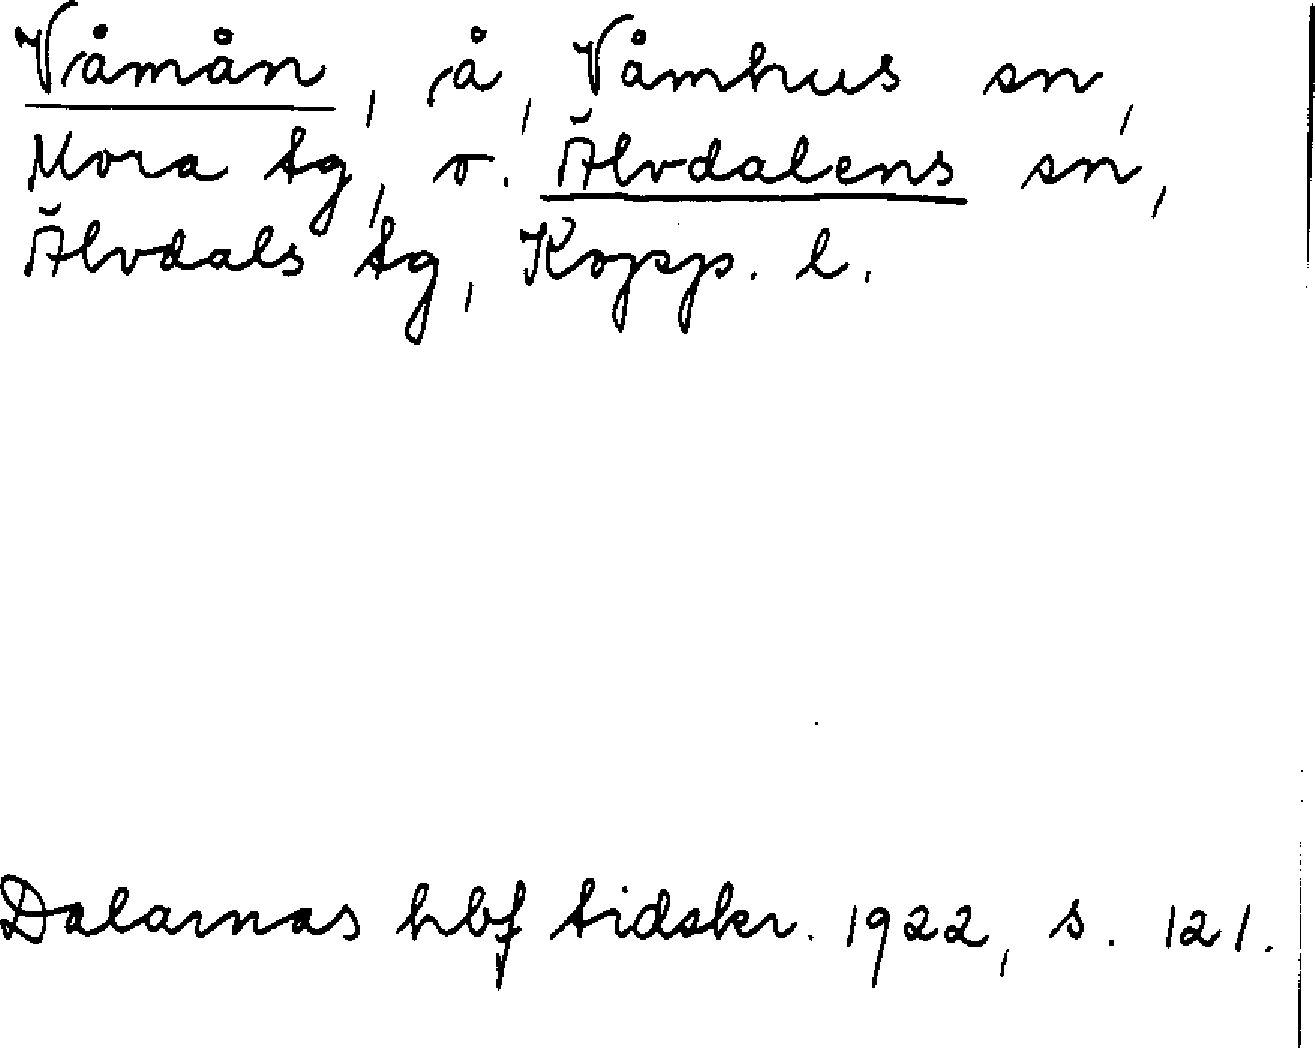 Våmån, å, Våmhus sn,
Mora tg, o. Älvdalens sn,
Älvdals tg, Kopp. l.
Dalarnas hbf tidskr. 1922, s. 121.